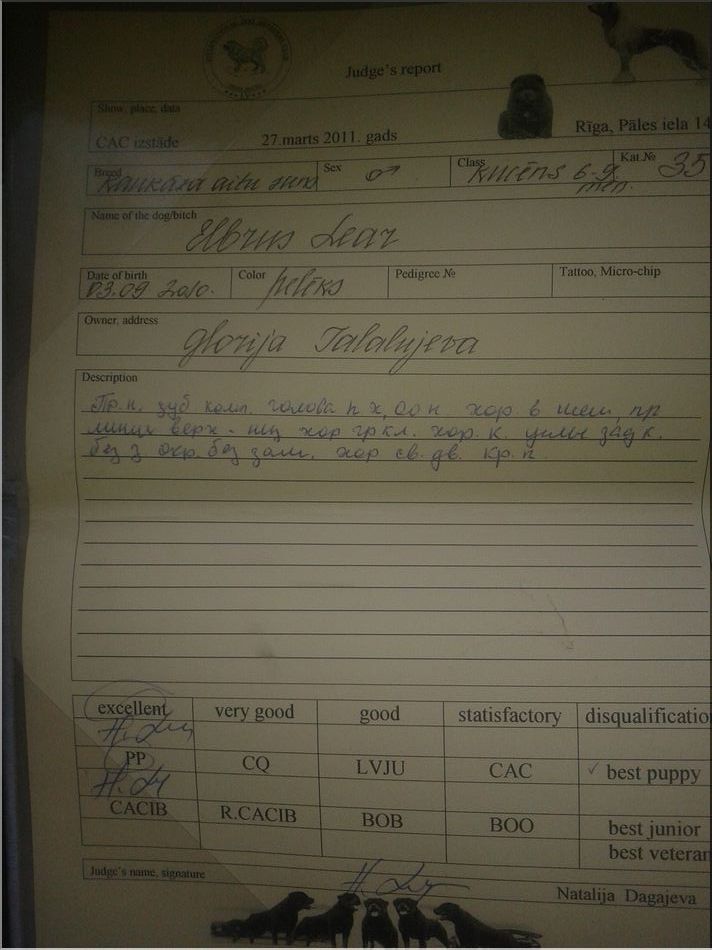 Judge's report
Show, place, data
CAC izstāde 27.marts 2011. gads Rīga, Pāles iela 14
Breed Sex Class Kat.№
Kaukāza aitu suns ♂ kucēns 6-9 mēn. 35
Name of the dog/bitch
Elbrus Lear
Date of birth Color Pedigree № Tattoo, Micro-chip
03.09 2010. pelēks
Owner, address
Glorija
Description
Пр. п. зуб комп. голова п х, хор. в шеи, пр
линии верх - низ хор гр кл. хор. к. углы зад к.
без з окр. без зам. хор св. дв. кр. п
excellent very good good statisfactory disqualificatio
PP CQ LVJU CAC ✓ best puppy
CACIB R.CACIB BOB BOO best junior
best veteran
Judge's name, signature
Natalija Dagajeva